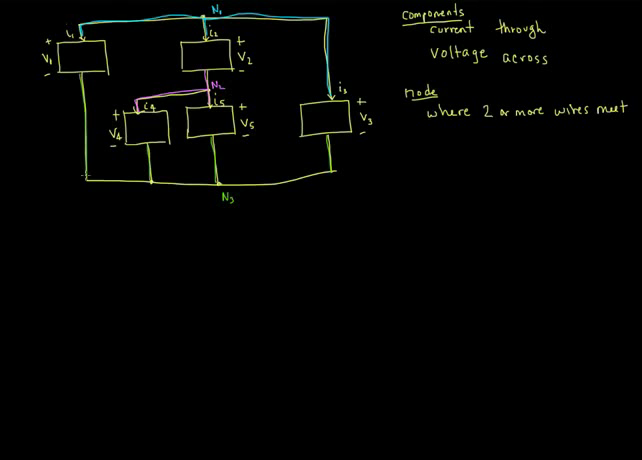 N₁
i₁
i₂
+
V₁
-
+
V₂
-
N₂
i₃
i₄
i₅
+
V₄
-
+
V₅
-
+
V₃
-
N₃
Components
Current through
Voltage across
node
where 2 or more wires meet